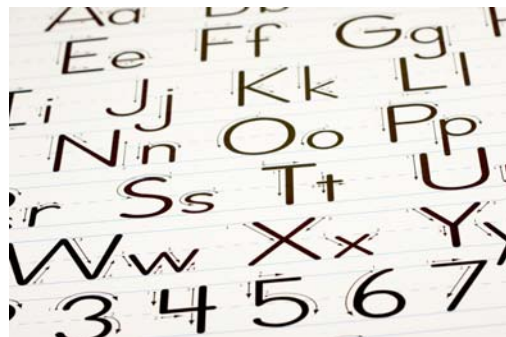 Aa Bb
Ee Ff Gg
Ii Jj Kk Ll
Nn Oo Pp
r Ss Tt U
Ww Xx Yy
3 4 5 6 7